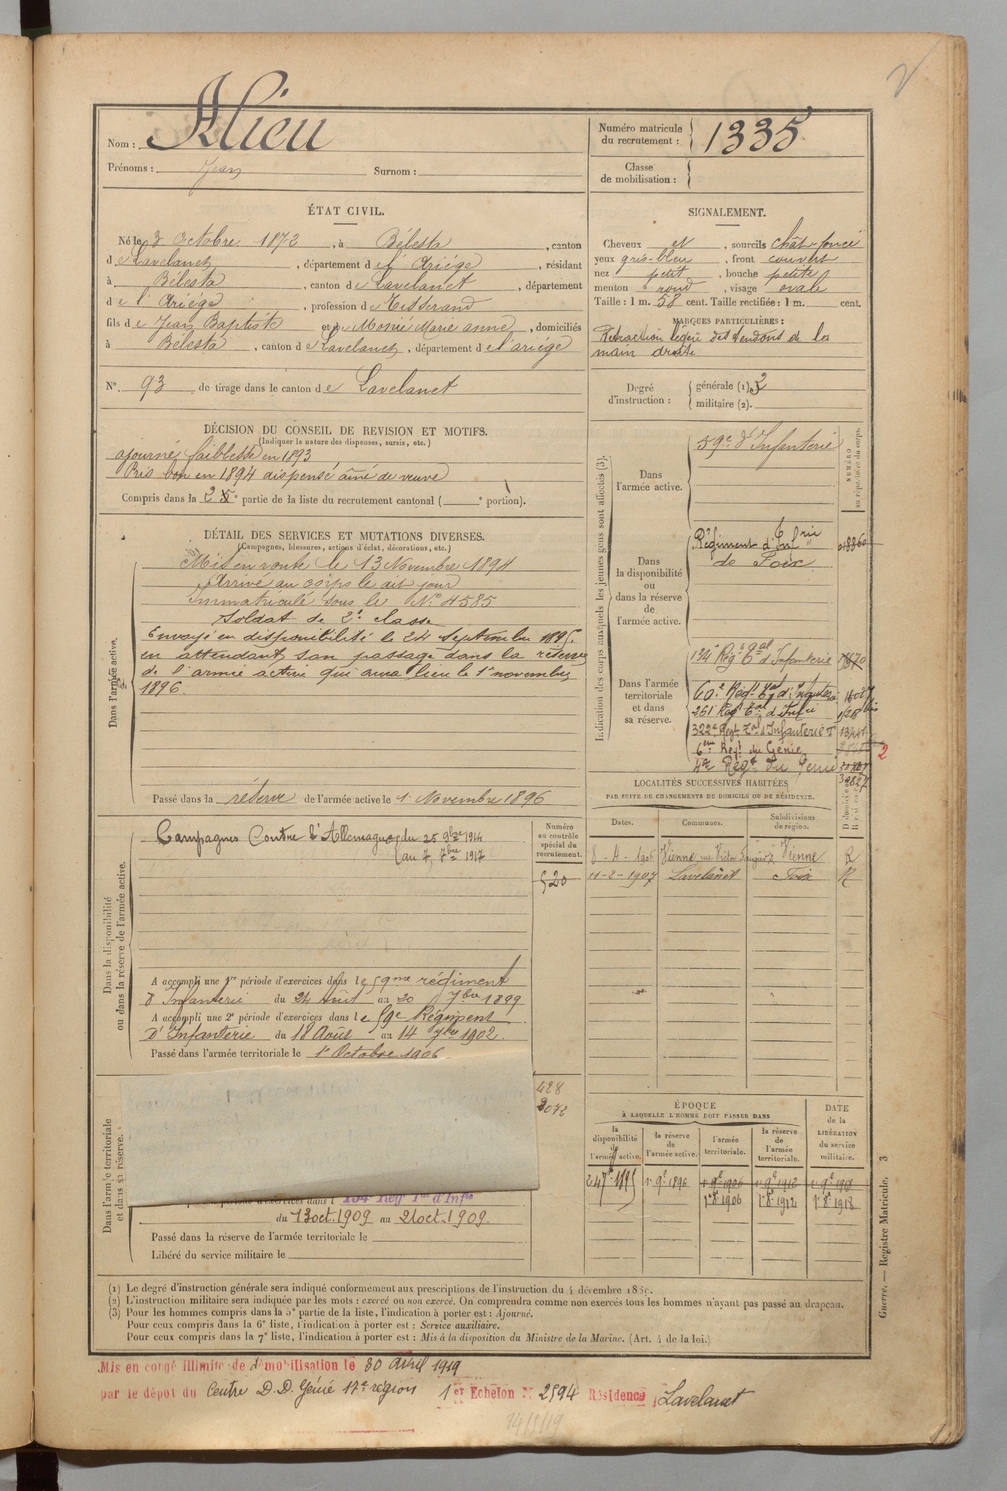 Nom : Alieu
Prénoms : Jean Surnom :
Numéro matricule du recrutement : 1335
Classe de mobilisation :
ÉTAT CIVIL.
Né le 3 Octobre 1872, à Bélesta, canton
de Lavelanet, département de l'Ariége, résidant
à Bélesta, canton de Lavelanet, département
de l'Ariége, profession de Tisserand
fils de Jean Baptiste et de Marie anne, domiciliés
à Bélesta, canton de Lavelanet, département de l'ariége
N° 93 de tirage dans le canton de Lavelanet
SIGNALEMENT.
Cheveux et, sourcils chât-foncé
yeux gris-bleu, front couvert
nez petit, bouche petite
menton rond, visage ovale
Taille : 1 m. 58 cent. Taille rectifiée : 1 m. cent.
MARQUES PARTICULIÈRES :
Rétraction légère des tendons de la
main droite
Degré d'instruction : générale (1) 2
militaire (2).
DÉCISION DU CONSEIL DE REVISION ET MOTIFS.
(Indiquer la nature des dispenses, sursis, etc.)
ajourné faiblesse en 1893
Pris bon en 1894 dispensé aîné de veuve
Compris dans la 2e partie de la liste du recrutement cantonal ( e portion).
DÉTAIL DES SERVICES ET MUTATIONS DIVERSES.
(Campagnes, blessures, actions d'éclat, décorations, etc.)
Dans l'armée active.
Mis en route le 13 Novembre 1894
Arrivé au corps le dit jour
Immatriculé sous le N° 4585
Soldat de 2e classe
Envoyé en disponibilité le 24 septembre 1895
en attendant son passage dans la réserve
de l'armée active qui aura lieu le 1er novembre
1896
Passé dans la réserve de l'armée active le 1 Novembre 1896
Indication des corps auxquels les jeunes gens sont affectés (3).
NUMÉRO au répertoire du corps.
Dans l'armée active.
59e d'Infanterie
Dans la disponibilité ou dans la réserve de l'armée active.
Régiment d'Infrie
de Foix
Dans l'armée territoriale et dans sa réserve.
134e Régt Tal d'Infanterie
60e Régt Tal d'Infanterie
261 Régt Tal d'Infie
322e Regt Tal d'Infanterie
6me Regt du Génie
4e Régt du Génie
2
LOCALITÉS SUCCESSIVES HABITÉES
PAR SUITE DE CHANGEMENTS DE DOMICILE OU DE RÉSIDENCE.
Dates. Communes. Subdivisions de région.
8-4-1906 Vienne, rue Victor Vienne R
11-2-1907 Lavelanet Foix R
Dans la disponibilité ou dans la réserve de l'armée active.
Numéro au contrôle spécial du recrutement.
520
Campagnes Contre l'Allemagne du 25 9bre 1914
au 7 7bre 1917
A accompli une 1re période d'exercices dans le 59me régiment
d'Infanterie du 24 Août au 20 7bre 1899
A accompli une 2e période d'exercices dans le 59e Régiment
D'Infanterie du 18 Août au 14 7bre 1902
Passé dans l'armée territoriale le 1er Octobre 1906
Dans l'armée territoriale et dans sa réserve.
428
2072
134 Reg Tal d'Infie
du 13 oct. 1909 au 21 oct. 1909
Passé dans la réserve de l'armée territoriale le
Libéré du service militaire le
ÉPOQUE
À LAQUELLE L'HOMME DOIT PASSER DANS
DATE de la LIBÉRATION du service militaire.
la disponibilité de l'armée active. la réserve de l'armée active. l'armée territoriale. la réserve de l'armée territoriale.
1895 1896 1906 1912 1918
1906 1912 1918
Guerre. — Registre Matricule. 3
(1) Le degré d'instruction générale sera indiqué conformément aux prescriptions de l'instruction du 4 décembre 1889.
(2) L'instruction militaire sera indiquée par les mots : exercé ou non exercé. On comprendra comme non exercés tous les hommes n'ayant pas passé au drapeau.
(3) Pour les hommes compris dans la 5e partie de la liste, l'indication à porter est : Ajourné.
Pour ceux compris dans la 6e liste, l'indication à porter est : Service auxiliaire.
Pour ceux compris dans la 7e liste, l'indication à porter est : Mis à la disposition du Ministre de la Marine. (Art. 4 de la loi.)
Mis en congé illimité de démobilisation le 30 Avril 1919
par le dépôt du Centre D.D. Génie 17e région 1er Echelon N° 2594 Résidence Lavelanet
14/5/19